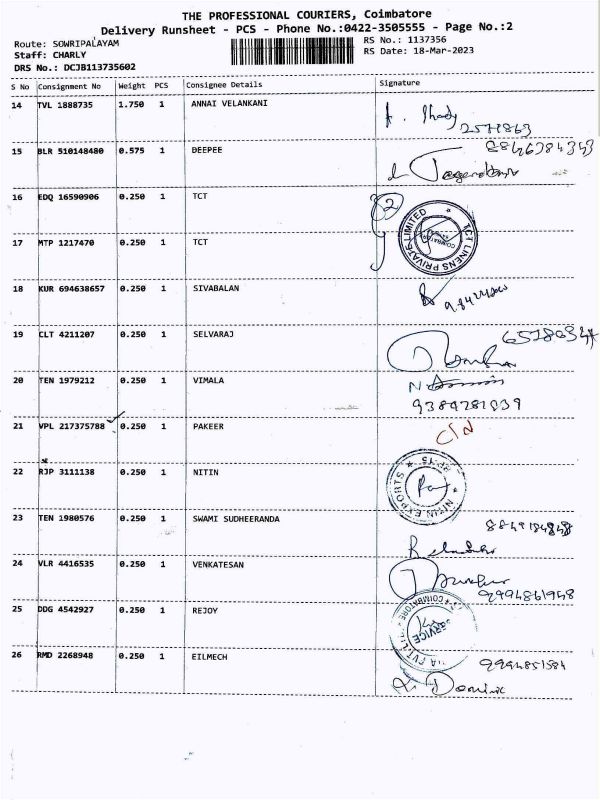 THE PROFESSIONAL COURIERS, Coimbatore
Delivery Runsheet - PCS - Phone No.:0422-3505555 - Page No.:2
Route: SOWRIPALAYAM
RS No.: 1137356
Staff: CHARLY
RS Date: 18-Mar-2023
DRS No.: DCJB113735602
S No Consignment No Weight PCS Consignee Details Signature
14 TVL 1888735 1.750 1 ANNAI VELANKANI
15 BLR 510148480 0.575 1 DEEPEE
16 EDQ 16590906 0.250 1 TCT
TCT LINENS PRIVATE LIMITED
17 MTP 1217470 0.250 1 TCT
18 KUR 694638657 0.250 1 SIVABALAN
19 CLT 4211207 0.250 1 SELVARAJ
20 TEN 1979212 0.250 1 VIMALA
21 VPL 217375788 0.250 1 PAKEER
C/N
22 RJP 3111138 0.250 1 NITIN
NITIN EXPORTS
23 TEN 1980576 0.250 1 SWAMI SUDHEERANDA
24 VLR 4416535 0.250 1 VENKATESAN
9994861948
25 DDG 4542927 0.250 1 REJOY
SERVICE
26 RMD 2268948 0.250 1 EILMECH
9994851584
Dominic